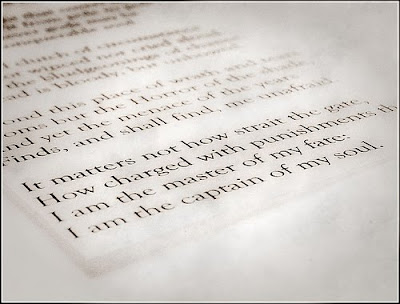 clutch of circumstance
nor cried
bludgeonings of
is bloody, but unbowed
this place of wrath and tears
but the Horror of the shade,
yet the menace of the years
Finds, and shall find, me unafraid.
It matters not how strait the gate,
How charged with punishments
I am the master of my fate:
I am the captain of my soul.